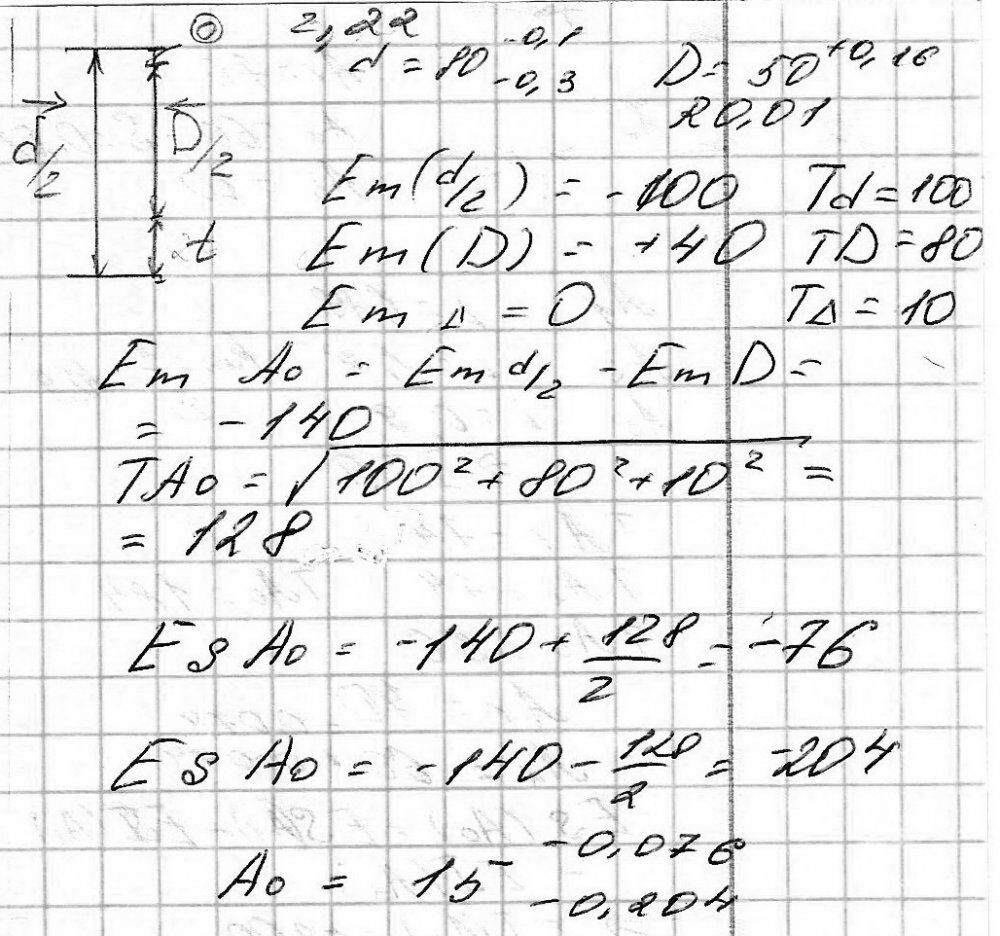 2,22
d = 80 -0,1 -0,3 D = 50 +0,16
⌾ 0,01
d/2 D/2 t
Em(d/2) = -100 Td = 100
Em(D) = +40 TD = 80
Em Δ = 0 TΔ = 10
Em A0 = Em d/2 - Em D =
= -140
TA0 = √100² + 80² + 10² =
= 128
Es A0 = -140 + 128/2 = -76
Es A0 = -140 - 128/2 = -204
A0 = 15 -0,076 -0,204